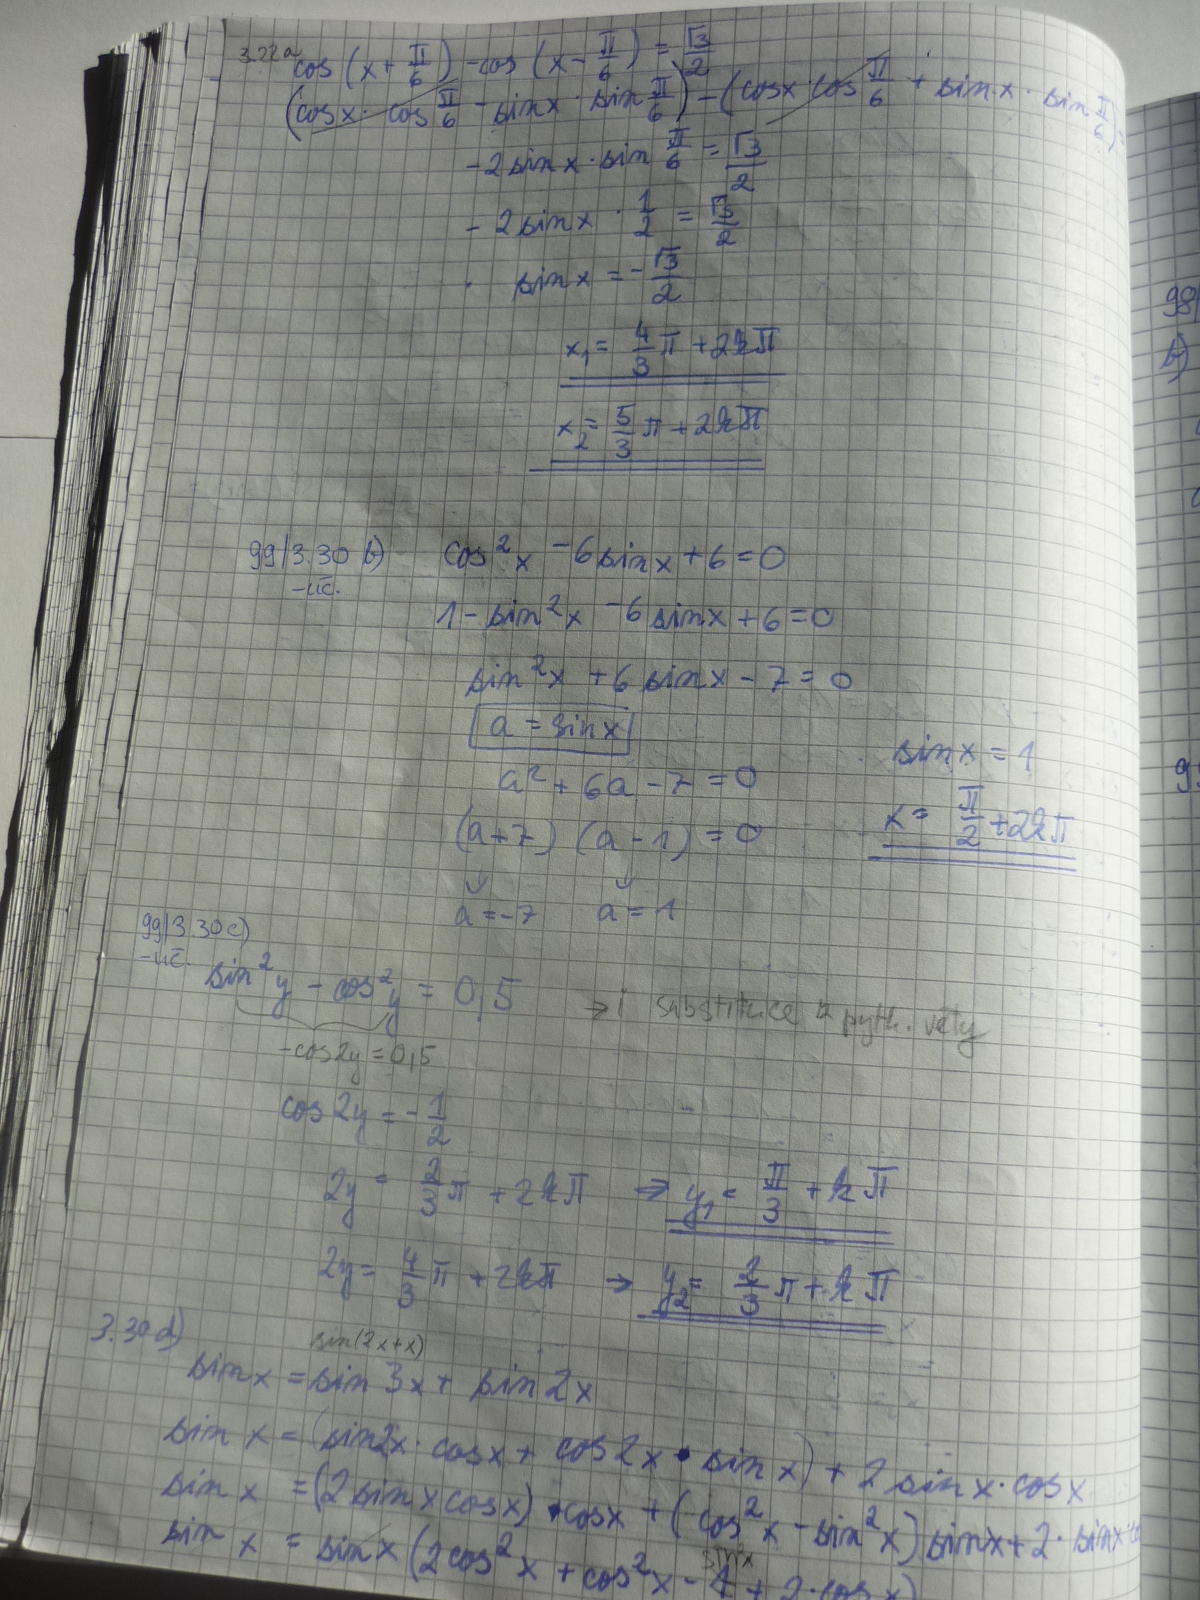 3.22a
cos (x + π/6) - cos (x - π/6) = √3/2
(cosx · cos π/6 - sinx · sin π/6) - (cosx · cos π/6 + sinx · sin π/6) =
- 2 sinx · sin π/6 = √3/2
- 2 sinx · 1/2 = √3/2
sinx = - √3/2
x₁ = 4/3 π + 2kπ
x₂ = 5/3 π + 2kπ
99/3.30 b) cos²x - 6 sinx + 6 = 0
-uč.
1 - sin²x - 6 sinx + 6 = 0
sin²x + 6 sinx - 7 = 0
a = sinx
a² + 6a - 7 = 0
(a+7) (a-1) = 0
a = -7 a = 1
sinx = 1
x = π/2 + 2kπ
99/3.30c)
-uč.
sin²y - cos²y = 0,5 → i substituce z pyth. věty
-cos2y = 0,5
cos 2y = - 1/2
2y = 2/3 π + 2kπ → y₁ = π/3 + kπ
2y = 4/3 π + 2kπ → y₂ = 2/3 π + kπ
3.30d)
sin(2x+x)
sinx = sin 3x + sin 2x
sin x = (sin2x · cosx + cos2x · sin x) + 2 sinx · cosx
sin x = (2 sinx cosx) · cosx + (cos²x - sin²x) sinx + 2 · sinx · co
sin²x
sin x = sinx (2cos²x + cos²x - 1 + 2 · cosx)
98/
b)